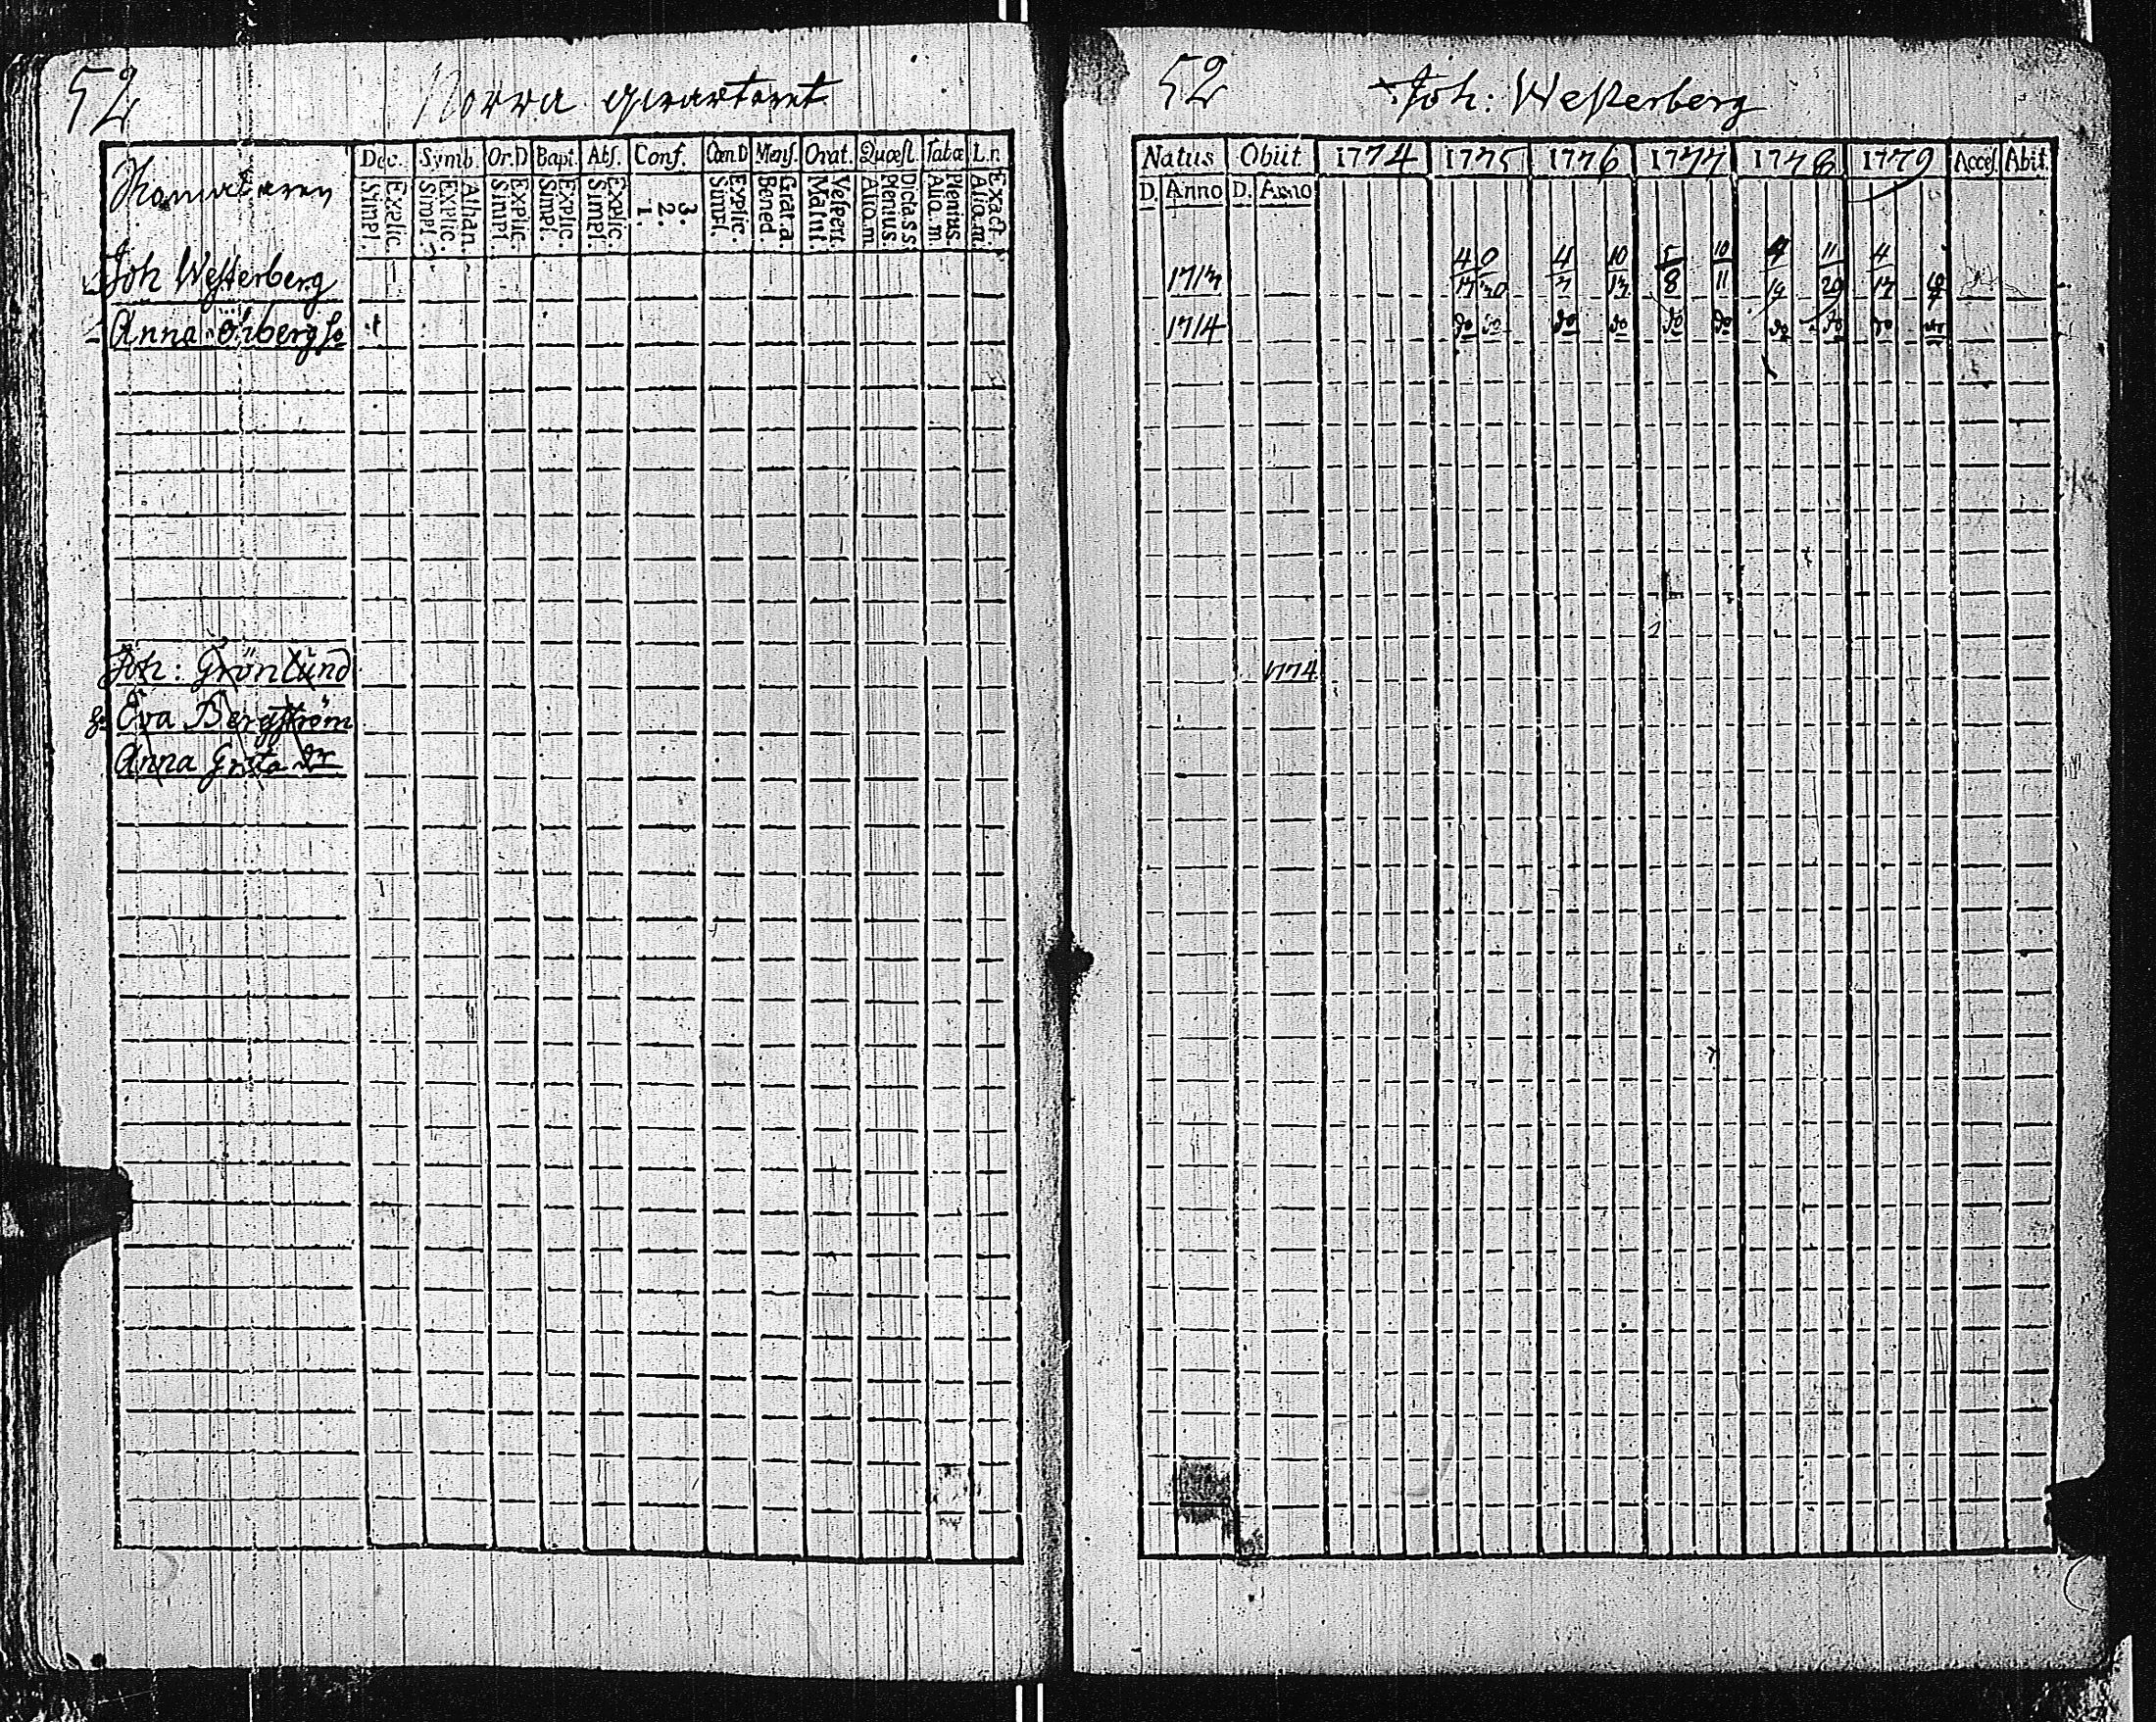 52 Norra qvarteret
Dec. Symb. Or.D Bapt. Abs. Conf. Cœn.D Mens. Orat. Quæst. Tabœ L.n
Simpl. Explic. Simpl. Explic. Athan. Simpl. Explic. Simpl. Explic. Simpl. Explic. 1. 2. 3. Simpl. Explic. Bened. Grat.a. Matut. Vespert. Aliq.m. Plenius Dicta.s.s. Aliq.m. Plenius Aliq.m. Exact.
Joh Westerberg
Anna Öhberg
Joh: Grönlund
Eva Bergström
Anna Greta dr
52 Joh: Westerberg
Natus Obiit 1774 1775 1776 1777 1778 1779 Acces. Abiit.
D. Anno D. Anno
1713 4/17 4/7 10/13 5/8 10/11 4/19 11/29 4/17
1714 do do do do do do do do do
1774